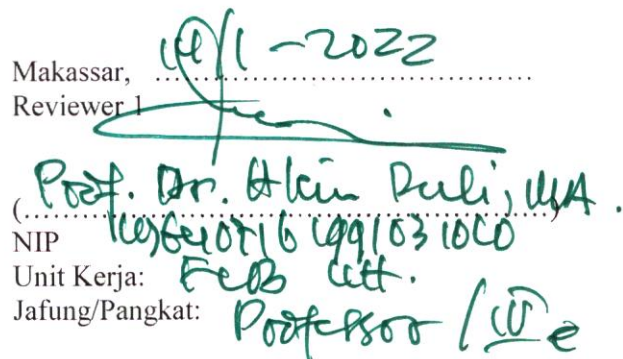 Makassar, 14/1-2022
Reviewer 1
(Prof. Dr. Akin Duli, MA.)
NIP 196407161991031010
Unit Kerja: FIB UH.
Jafung/Pangkat: Professor / IV e